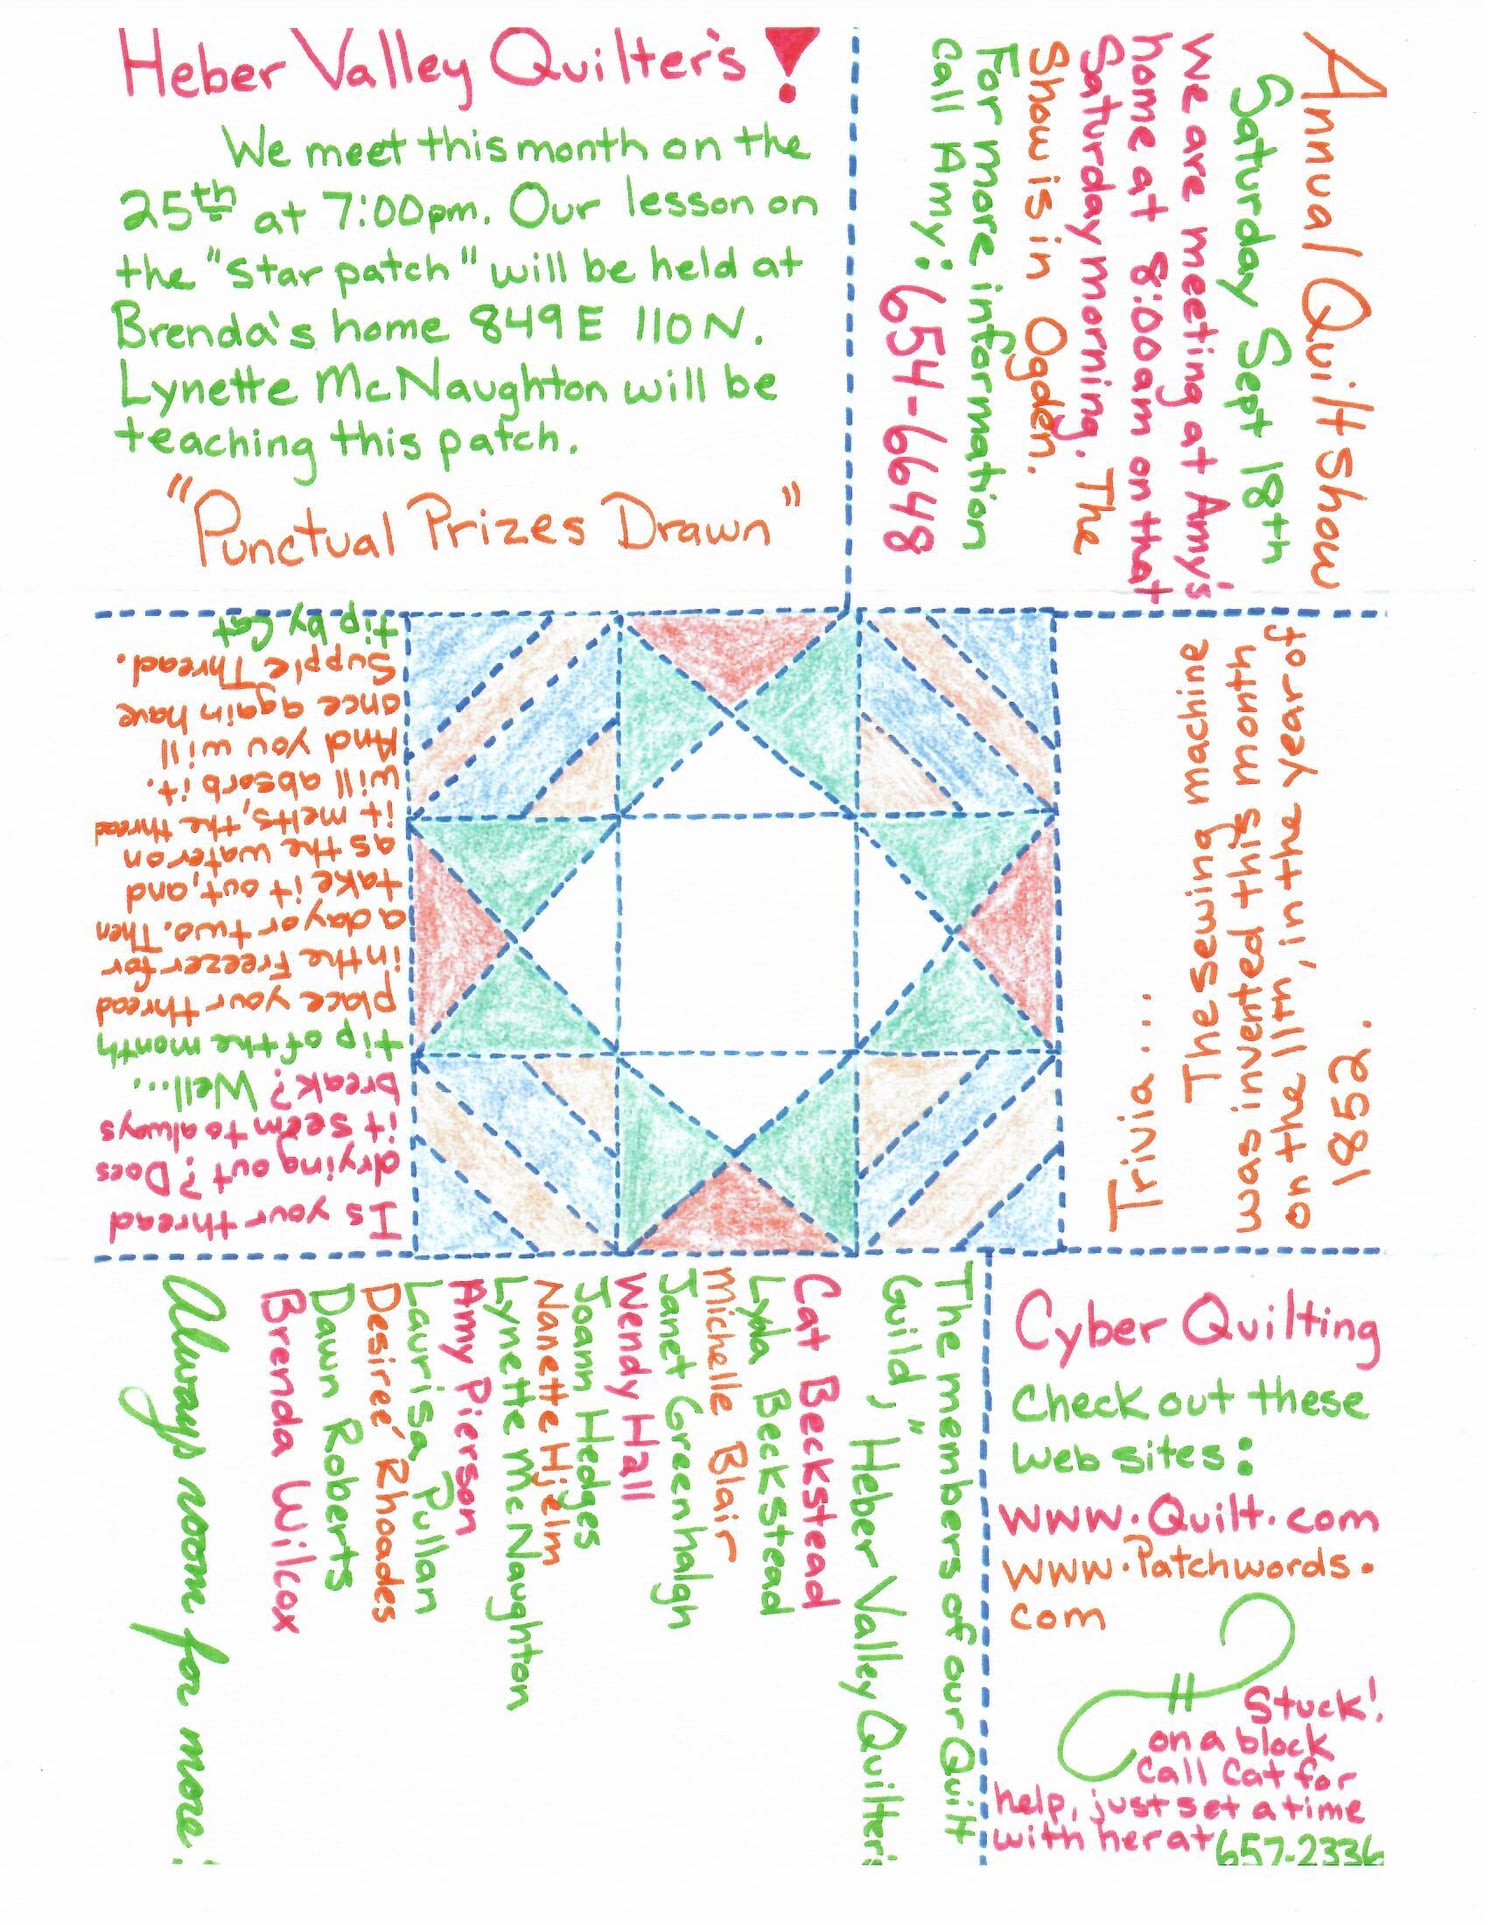 Heber Valley Quilter's!
We meet this month on the
25th at 7:00pm. Our lesson on
the "star patch" will be held at
Brenda's home 849 E 110 N.
Lynette McNaughton will be
teaching this patch.
"Punctual Prizes Drawn"
Annual Quilt Show
Saturday Sept 18th
We are meeting at Amy's
home at 8:00am on that
Saturday morning. The
Show is in Ogden.
For more information
call Amy: 654-6648
Is your thread
drying out? Does
it seem to always
break? Well...
tip of the month
place your thread
in the freezer for
a day or two. Then
take it out, and
as the water on
it melts, the thread
will absorb it.
And you will
once again have
Supple Thread.
tip by Cat
Trivia....
The sewing machine
was invented this month
on the 11th, in the year of
1852.
The members of our Quilt
Guild, "Heber Valley Quilter
Cat Beckstead
Lyda Beckstead
Michelle Blair
Janet Greenhalgh
Wendy Hall
Joann Hedges
Nanette Hjelm
Lynette McNaughton
Amy Pierson
Laurisa Pullan
Desireé Rhoades
Dawn Roberts
Brenda Wilcox
Always room for more!
Cyber Quilting
Check out these
web sites:
www.Quilt.com
www.Patchwords.
com
Stuck!
on a block
Call Cat for
help, just set a time
with her at 657-2336